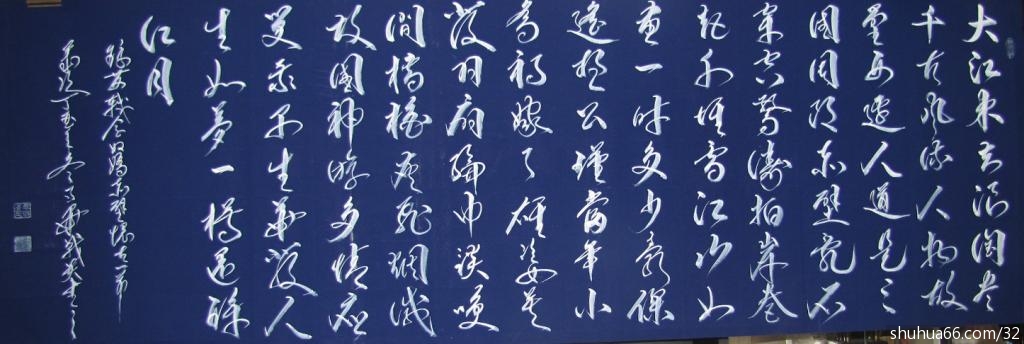 大江東去浪淘盡
千古風流人物故
壘西邊人道是三
國周郎赤壁亂石
穿空驚濤拍岸卷
起千堆雪江山如
畫一時多少豪傑
遙想公瑾當年小
喬初嫁了雄姿英
發羽扇綸巾談笑
間檣櫓灰飛煙滅
故國神遊多情應
笑我早生華發人
生如夢一樽還酹
江月
錄蘇軾念奴嬌赤壁懷古一首
shuhua66.com/32